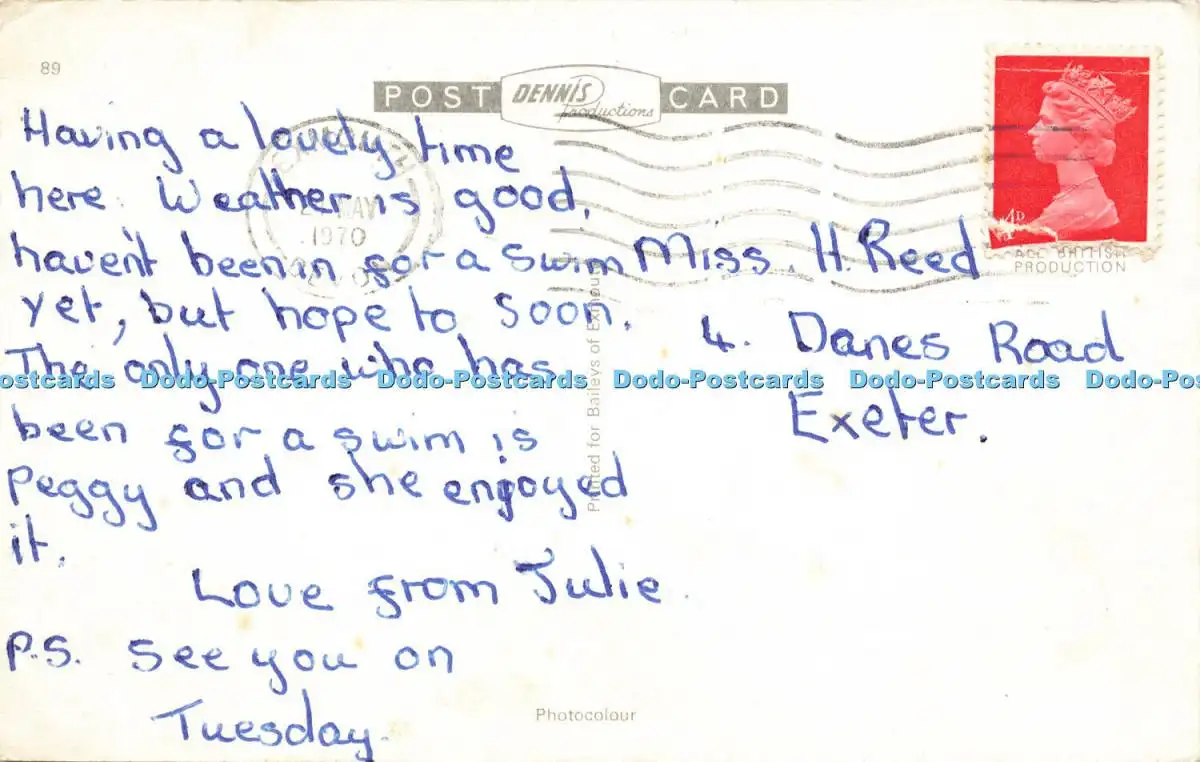 89
POST DENNIS Productions CARD
Having a lovely time
here. Weather is good,
haven't been in for a swim
yet, but hope to soon.
The only one who has
been for a swim is
Peggy and she enjoyed
it.
Love from Julie.
P.S. See you on
Tuesday.
1970
4D
ALL BRITISH
PRODUCTION
Miss. H. Reed
4. Danes Road
Exeter.
Printed for Baileys of Exmouth
Photocolour
ostcards Dodo-Postcards Dodo-Postcards Dodo-Postcards Dodo-Postcards Dodo-Pos